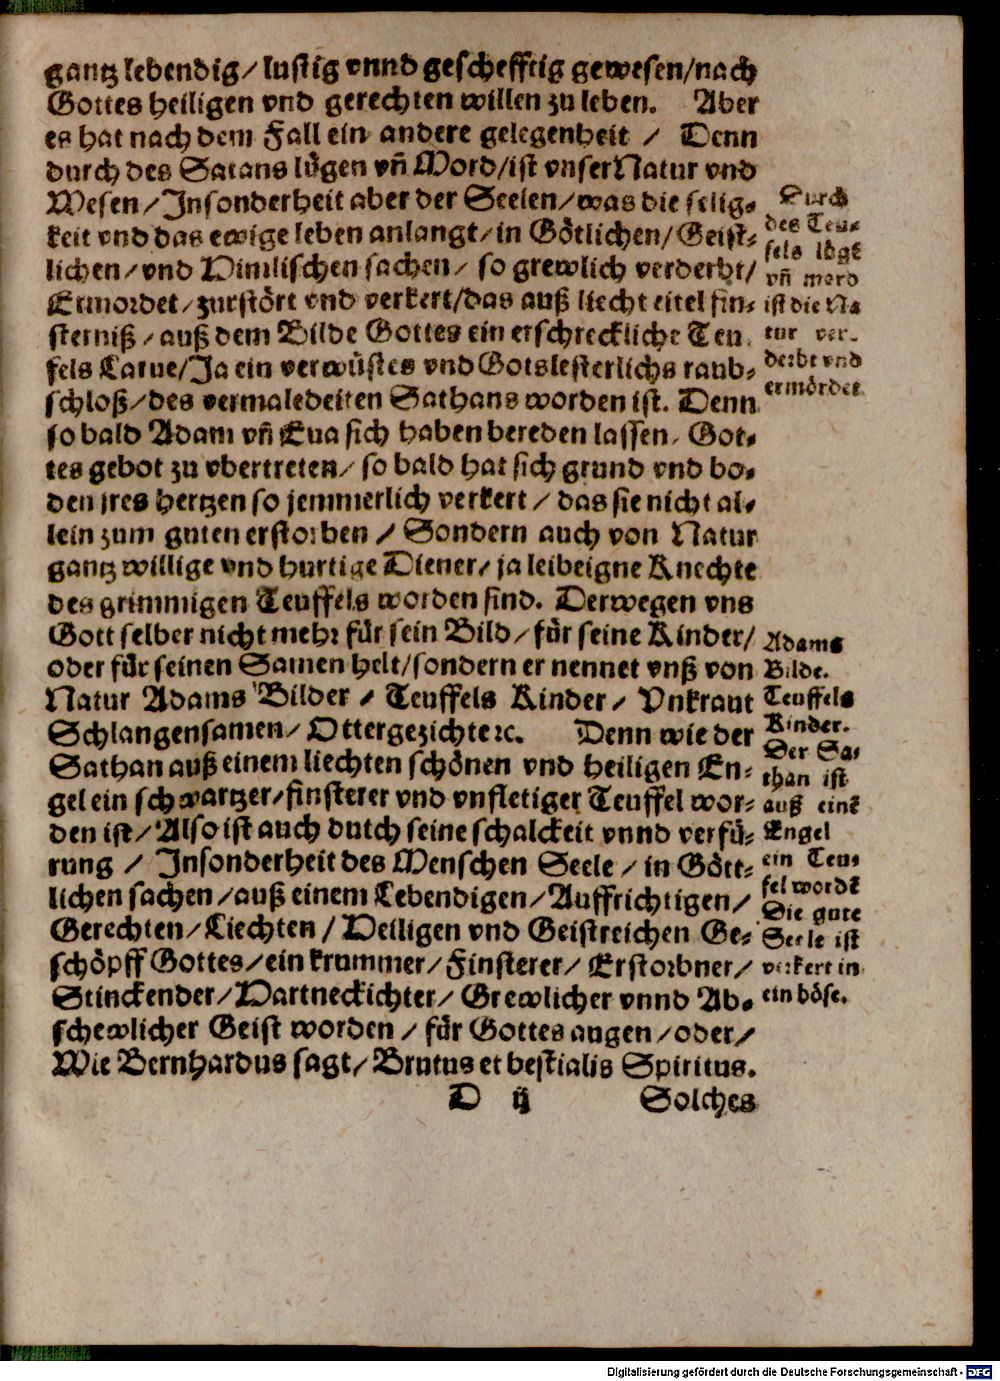 gantz lebendig/ lustig vnnd geschefftig gewesen/nach
Gottes heiligen vnd gerechten willen zu leben. Aber
es hat nach dem Fall ein andere gelegenheit / Denn
durch des Satans lügen vñ Mord/ist vnser Natur vnd
Wesen/Jnsonderheit aber der Seelen/was die selig-
keit vnd das ewige leben anlangt/in Götlichen/Geist-
lichen/vnd Himlischen sachen/ so grewlich verderbt/
Ermordet/zurstört vnd verkert/das auß liecht eitel fin-
sterniß/auß dem Bilde Gottes ein erschreckliche Teu-
fels Larue/Ja ein verwüstes vnd Gotslesterlichs raub-
schloß/des vermaledeiten Sathans worden ist. Denn
so bald Adam vñ Eua sich haben bereden lassen/ Got-
tes gebot zu vbertreten/ so bald hat sich grund vnd bo-
den jres hertzen so jemmerlich verkert / das sie nicht al-
lein zum guten erstorben / Sondern auch von Natur
gantz willige vnd hurtige Diener/ ja leibeigne Knechte
des grimmigen Teuffels worden sind. Derwegen vns
Gott selber nicht mehr für sein Bild/ für seine Kinder/
oder für seinen Samen helt/sondern er nennet vnß von
Natur Adams Bilder / Teuffels Kinder/ Vnkraut
Schlangensamen/ Ottergezichte ꝛc. Denn wie der
Sathan auß einem liechten schönen vnd heiligen En-
gel ein schwartzer/finsterer vnd vnfletiger Teuffel wor-
den ist/ Also ist auch dutch seine schalckeit vnnd verfü-
rung / Jnsonderheit des Menschen Seele / in Gött-
lichen sachen/auß einem Lebendigen/Auffrichtigen/
Gerechten/Liechten / Heiligen vnd Geistreichen Ge-
schöpff Gottes/ein krummer/Finsterer/ Erstorbner/
Stinckender/Hartneckichter/ Grewlicher vnnd Ab-
schewlicher Geist worden / für Gottes augen/oder/
Wie Bernhardus sagt/ Brutus et bestialis Spiritus.
D ij Solches
Durch
des Teu-
fels lügē
vñ mord
ist die Na
tur ver-
derbt vnd
ermördet.
Adams
Bilde.
Teuffels
Kinder.
Der Sa-
than ist
auß einē
Engel
ein Teu-
fel wordē
Die gute
Seele ist
verkert in
ein böse.
Digitalisierung gefördert durch die Deutsche Forschungsgemeinschaft - DFG